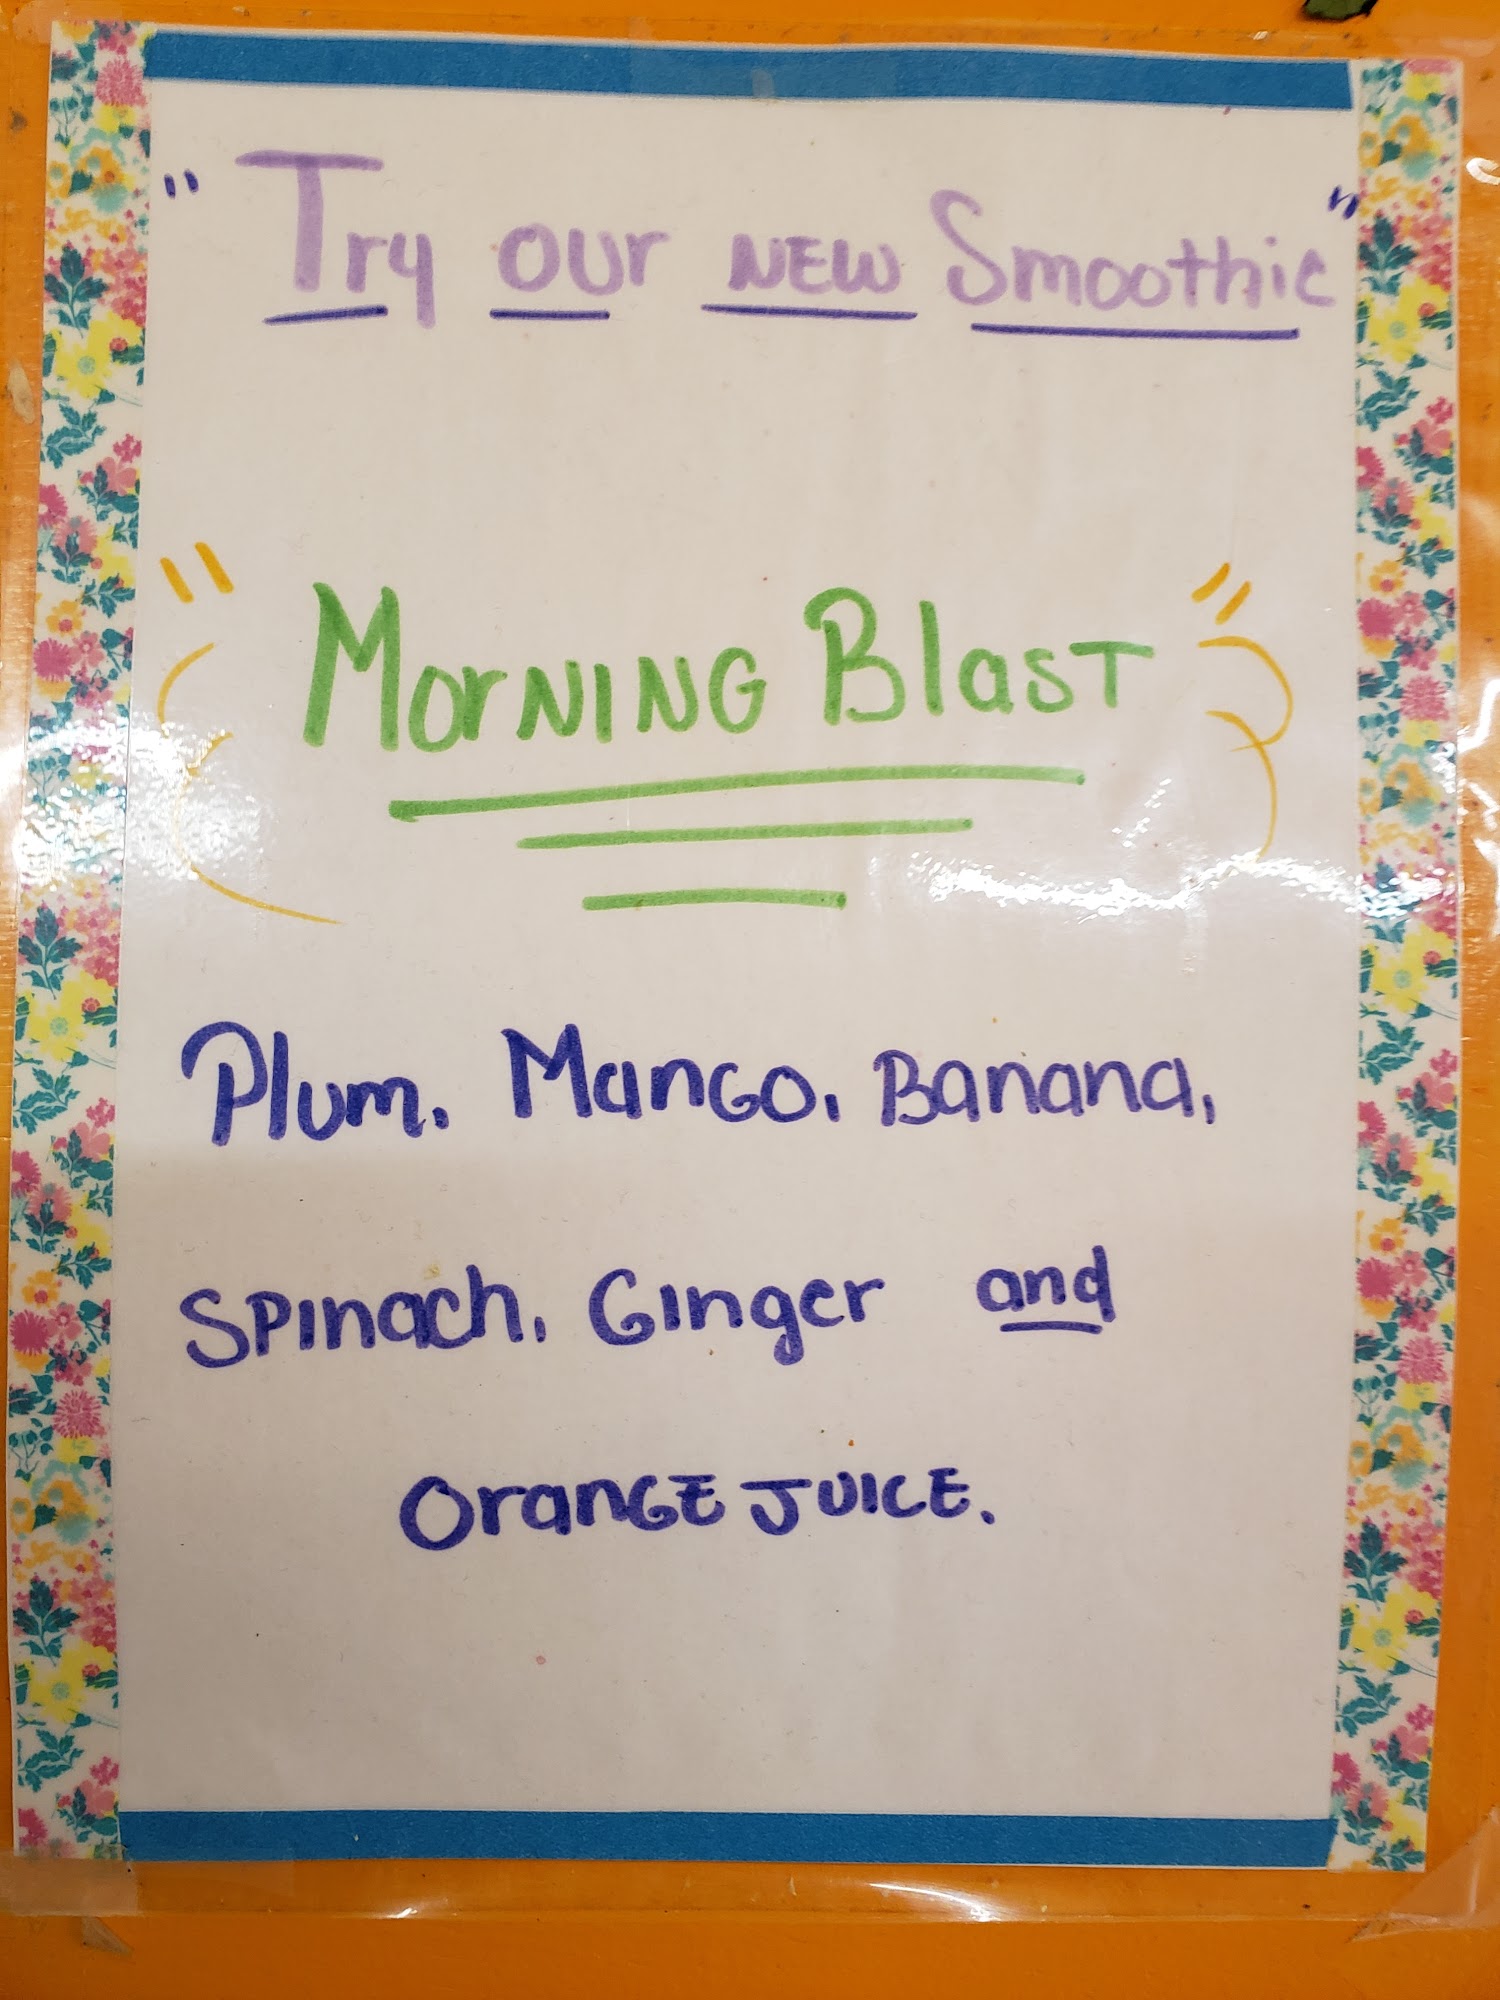 "Try our NEW Smoothie"
"Morning Blast"
Plum, Mango, Banana,
Spinach, Ginger and
Orange Juice.